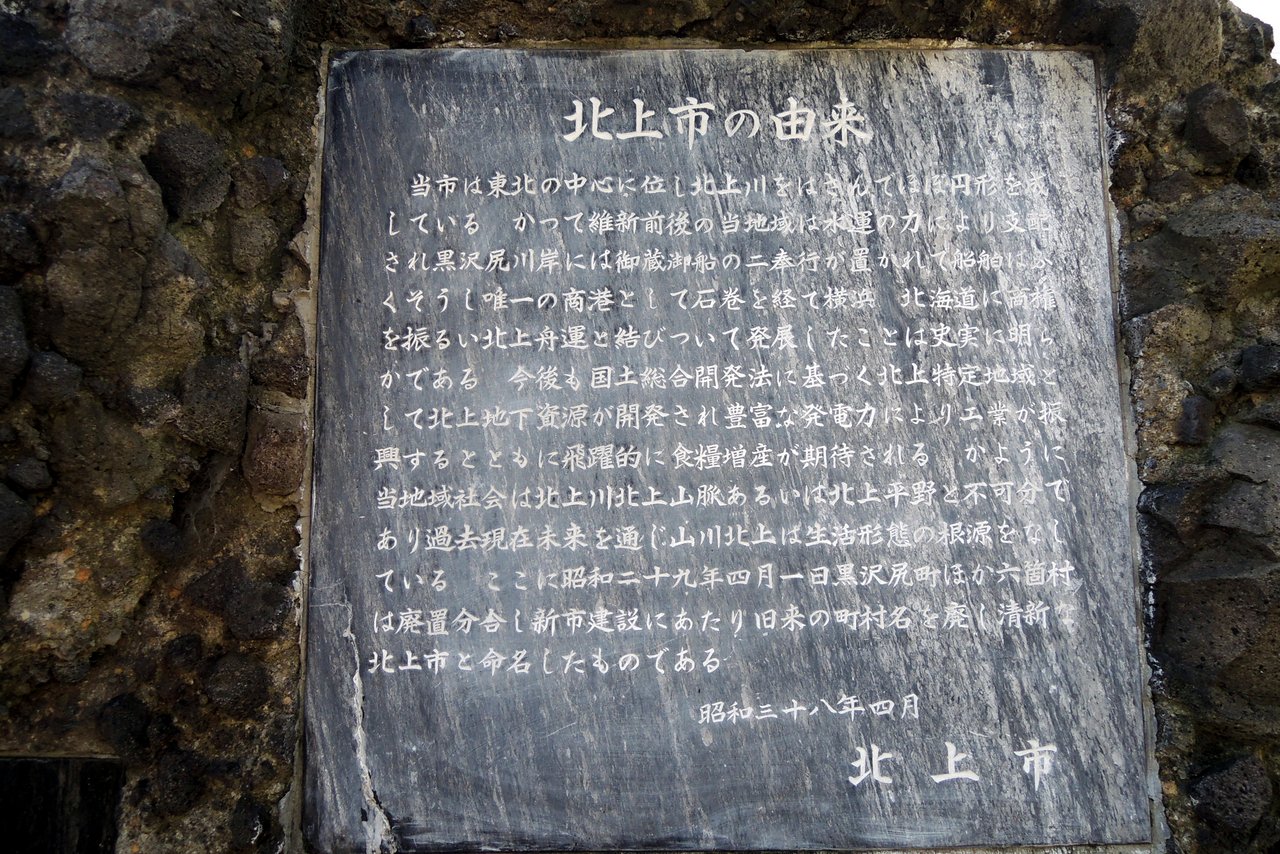 北上市の由来
当市は東北の中心に位し北上川をはさんでほぼ円形を成
している　かって維新前後の当地域は水運の力により支配
され黒沢尻川岸には御蔵御船の二奉行が置かれて船舶はふ
くそうし唯一の商港として石巻を経て横浜　北海道に商権
を振るい北上舟運と結びついて発展したことは史実に明ら
かである　今後も国土総合開発法に基づく北上特定地域と
して北上地下資源が開発され豊富な発電力により工業が振
興するとともに飛躍的に食糧増産が期待される　かように
当地域社会は北上川北上山脈あるいは北上平野と不可分で
あり過去現在未来を通じ山川北上は生活形態の根源をなし
ている　ここに昭和二十九年四月一日黒沢尻町ほか六箇村
は廃置分合し新市建設にあたり旧来の町村名を廃し清新な
北上市と命名したものである
昭和三十八年四月
北上市